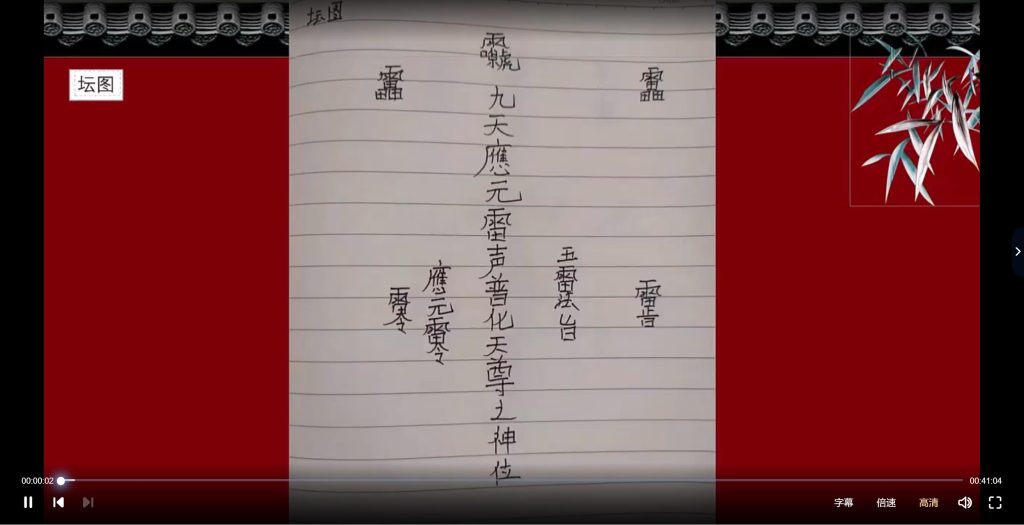 坛图
坛图
九天應元雷声普化天尊之神位
應元雷令
五雷法旨
雷令
00:00:02
00:41:04
字幕 倍速 高清